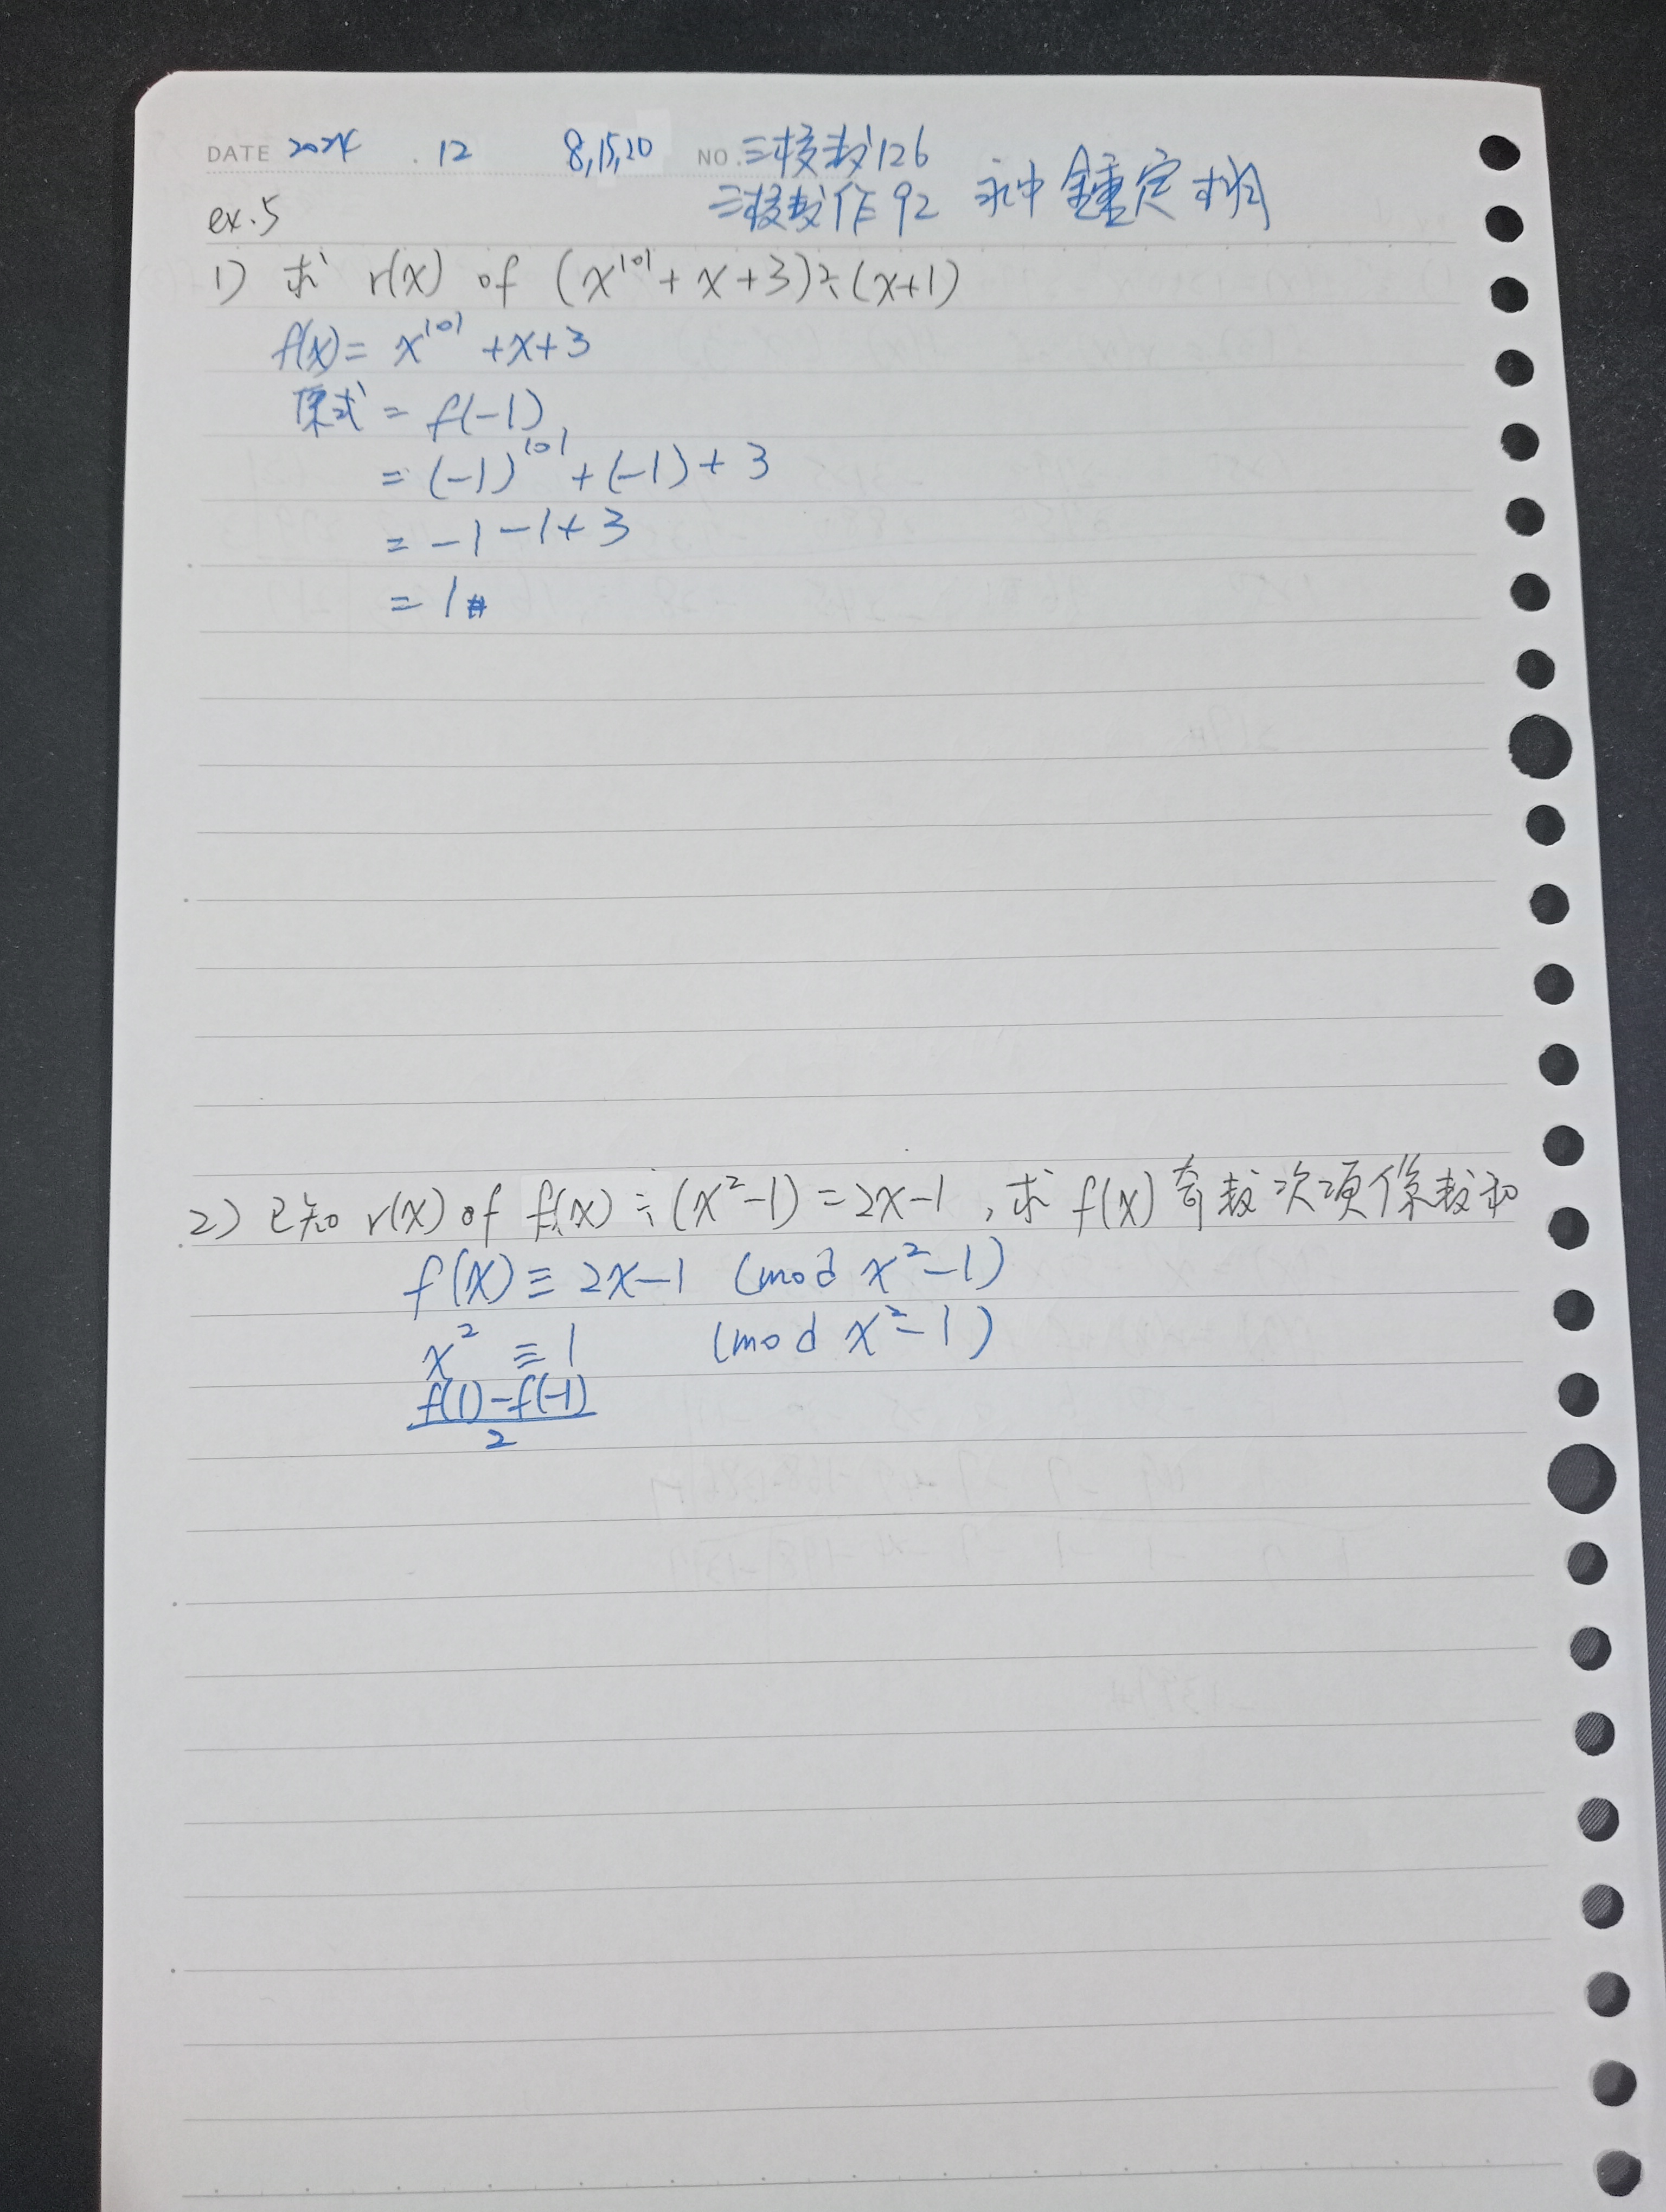 DATE 2024 . 12 8,15,20 NO. 三技数126
三技数作92 永中 鍾定栩
ex.5
1) 求 r(x) of (x¹⁰¹ + x + 3) ÷ (x+1)
f(x) = x¹⁰¹ + x + 3
原式 = f(-1)
= (-1)¹⁰¹ + (-1) + 3
= -1 -1 + 3
= 1 #
2) 已知 r(x) of f(x) ÷ (x²-1) = 2x-1 , 求 f(x) 奇数次項係数和
f(x) ≡ 2x-1 (mod x²-1)
x² ≡ 1 (mod x²-1)
f(1)-f(-1)
2